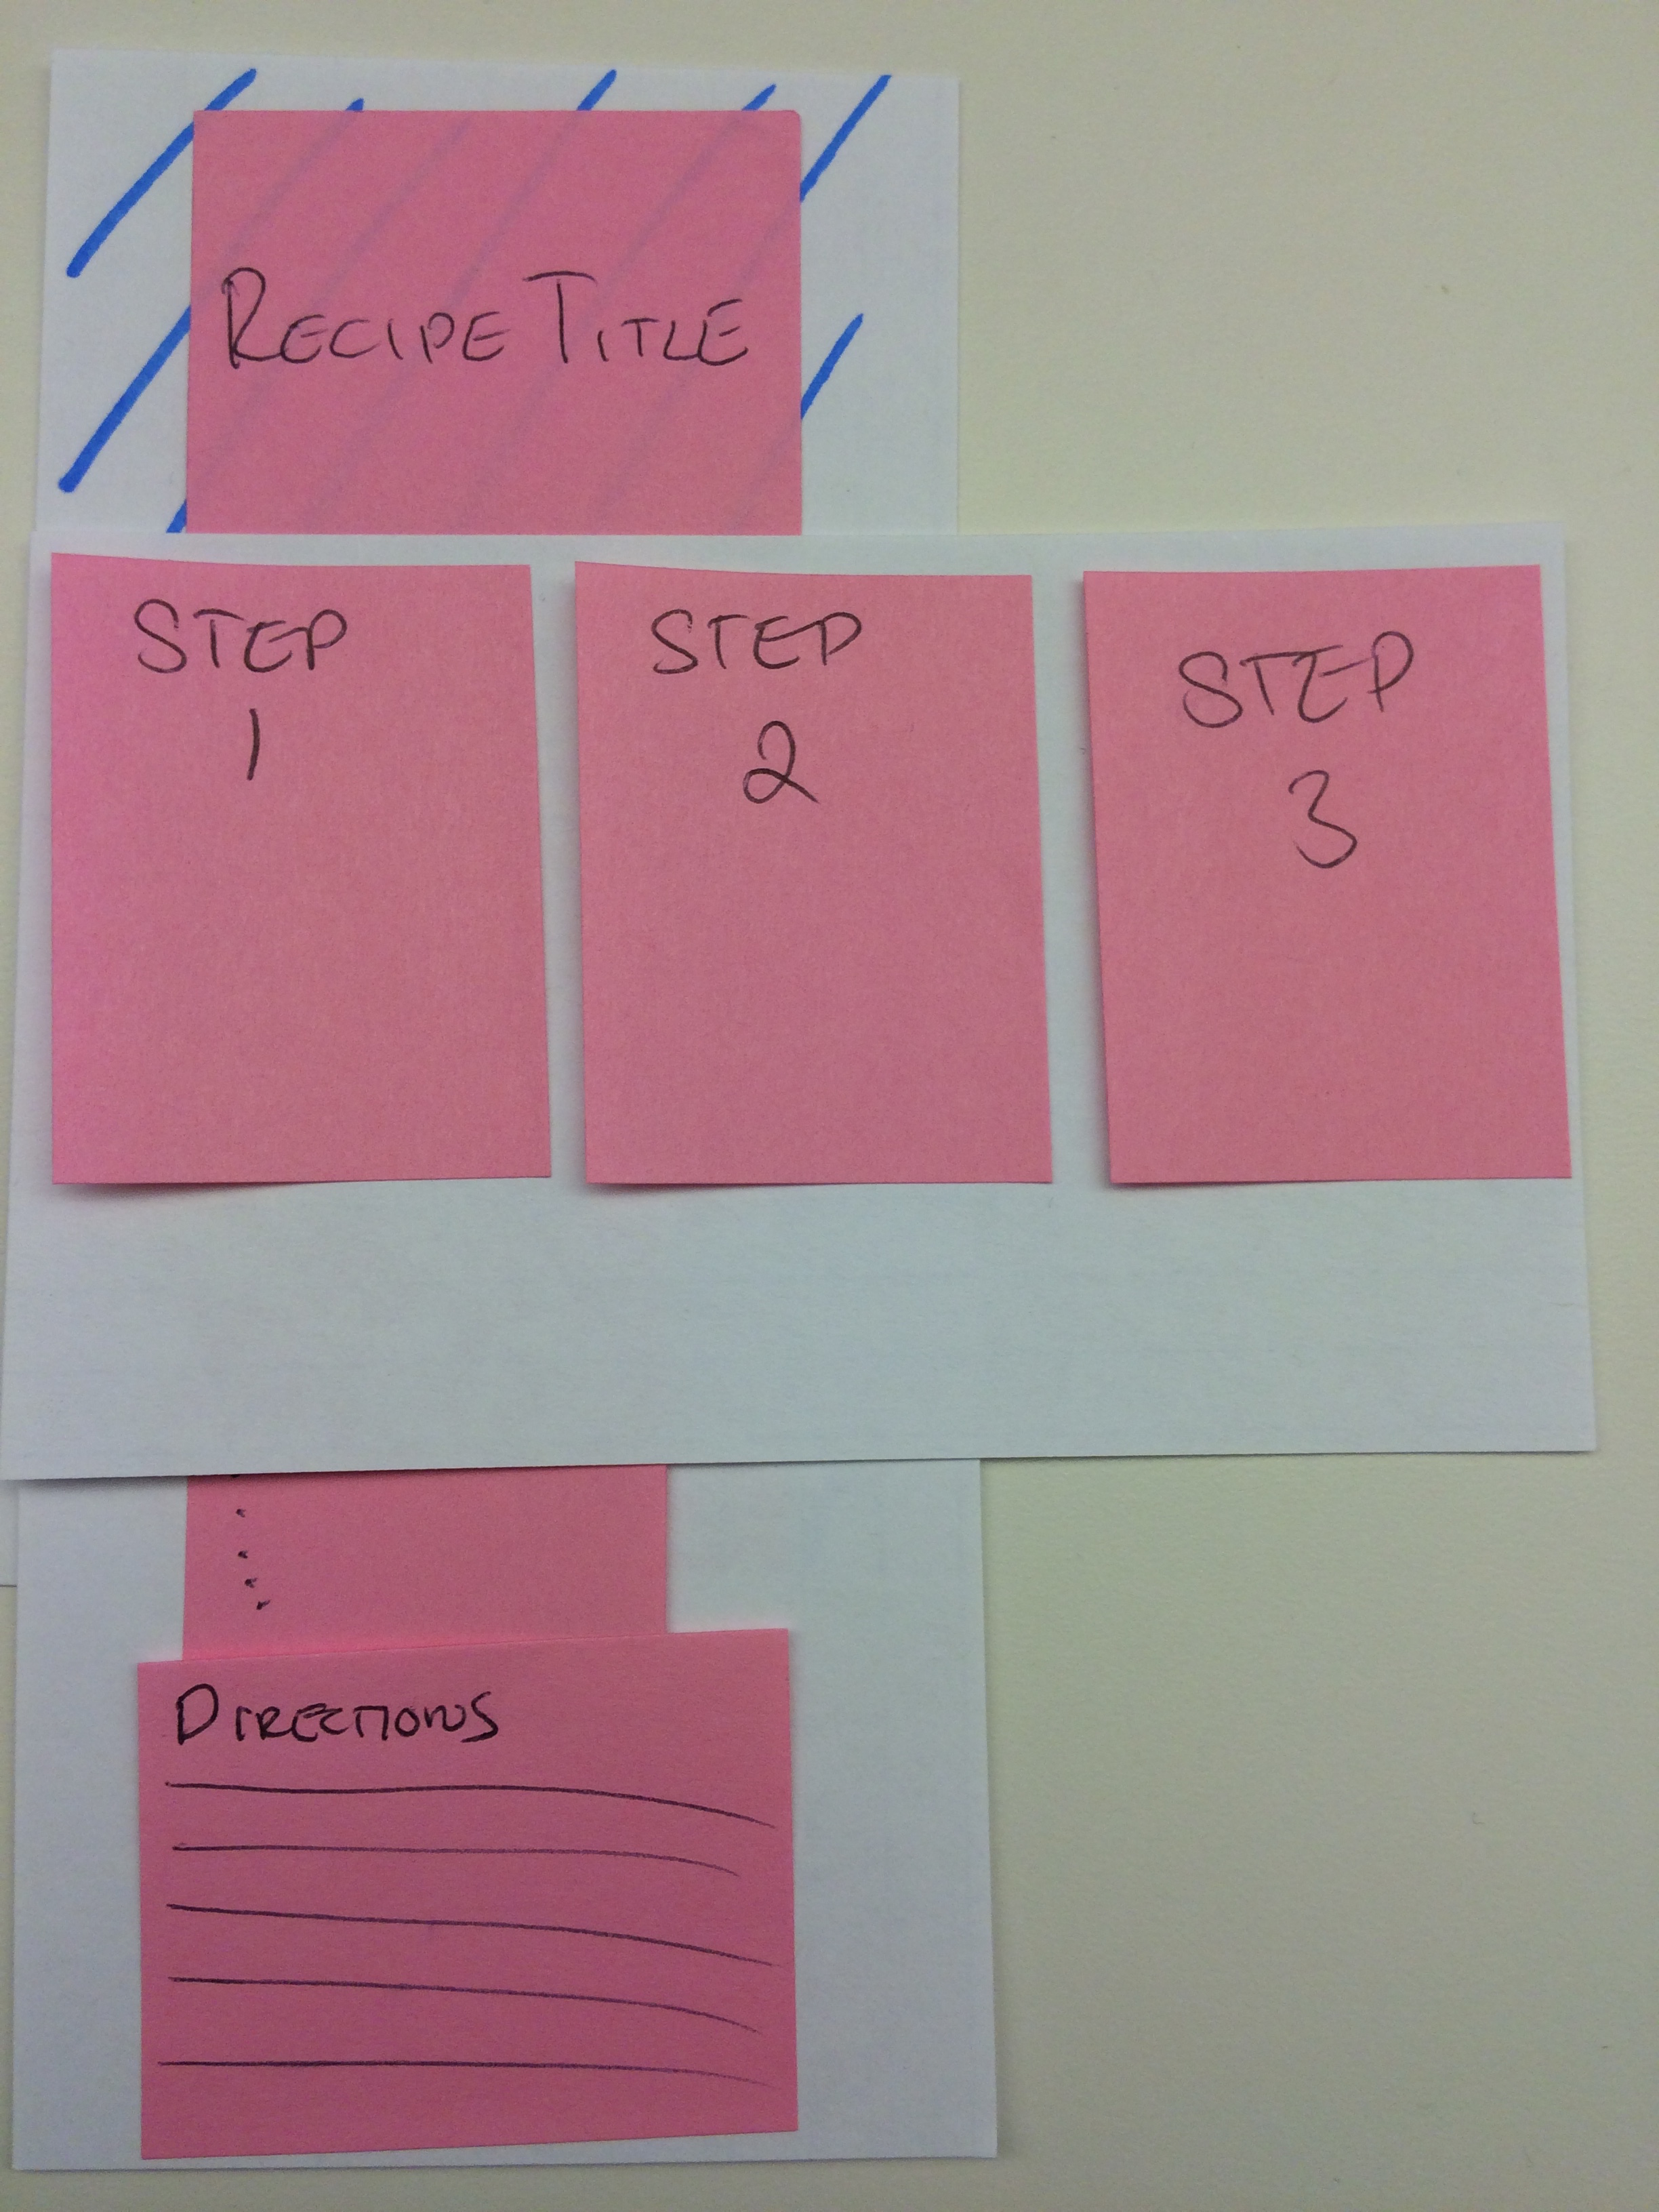 RECIPE TITLE
STEP
1
STEP
2
STEP
3
DIRECTIONS